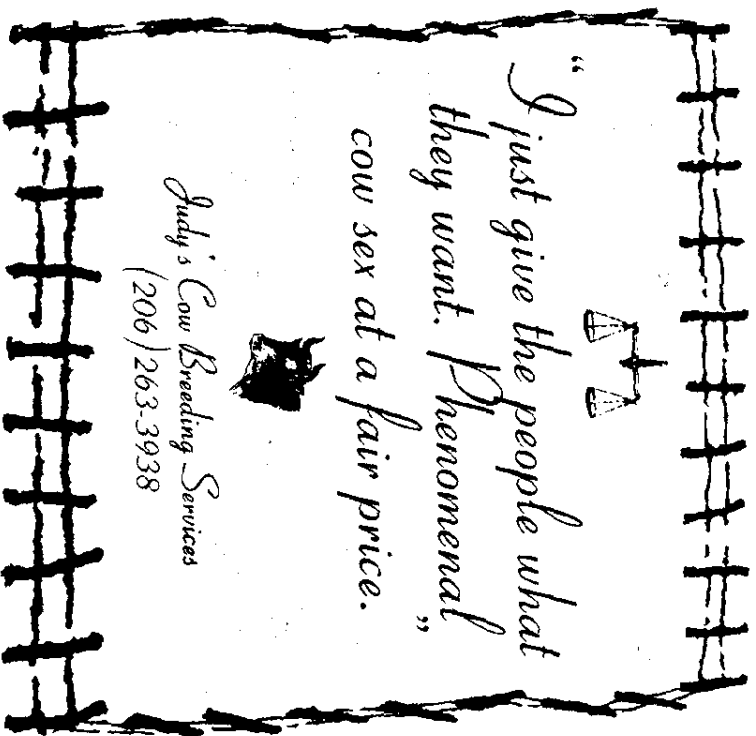 “I just give the people what
they want. Phenomenal
cow sex at a fair price.”
Judy's Cow Breeding Services
(206)263-3938